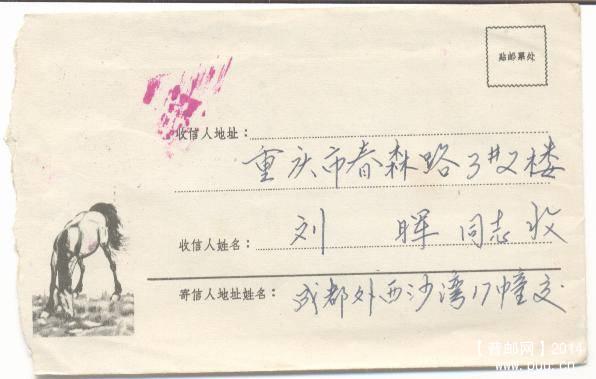 贴邮票处
收信人地址:
重庆市春森路3#2楼
收信人姓名: 刘 晖 同志 收
寄信人地址姓名: 成都外西沙湾17幢交
【普邮网】2014